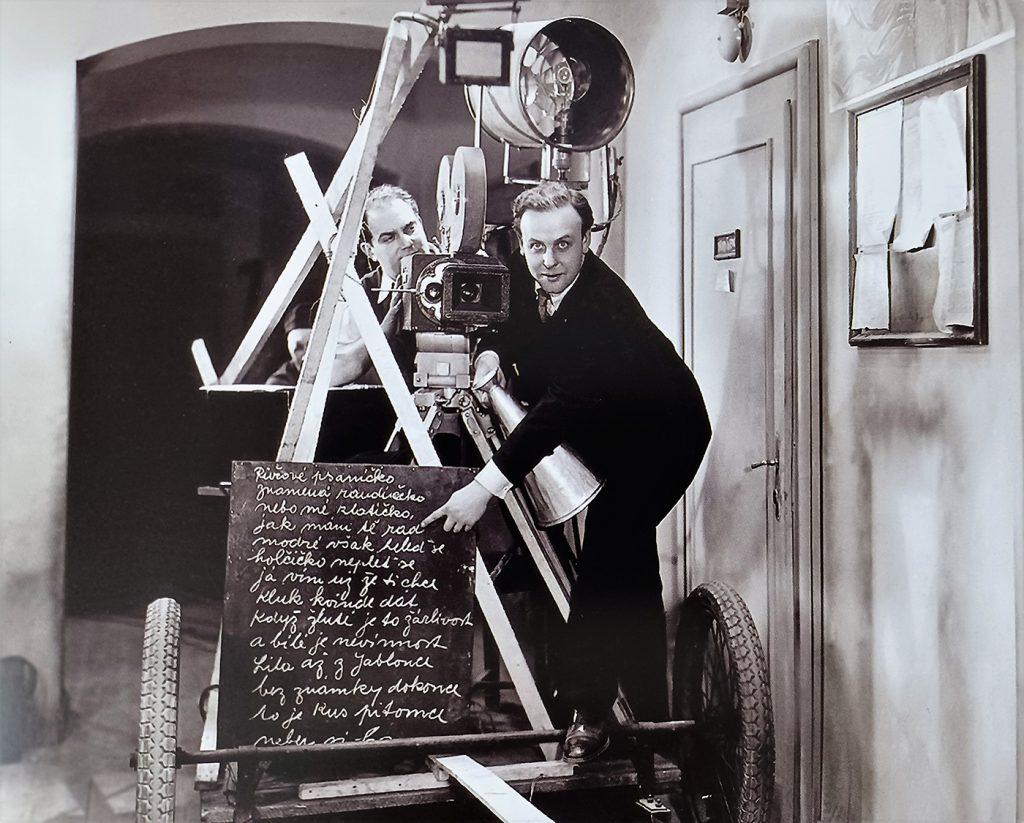 Růžové psaníčko
znamená randíčko
nebo mé zlatíčko,
jak mám tě rád
modré však hleď se
holčičko neplet se
já vím už že ti chce
kluk kvinde dát
když žluté je to žárlivost
a bílé je nevinnost
Lila až z Jablonce
bez známky dokonce
to je kus pitomce
neber